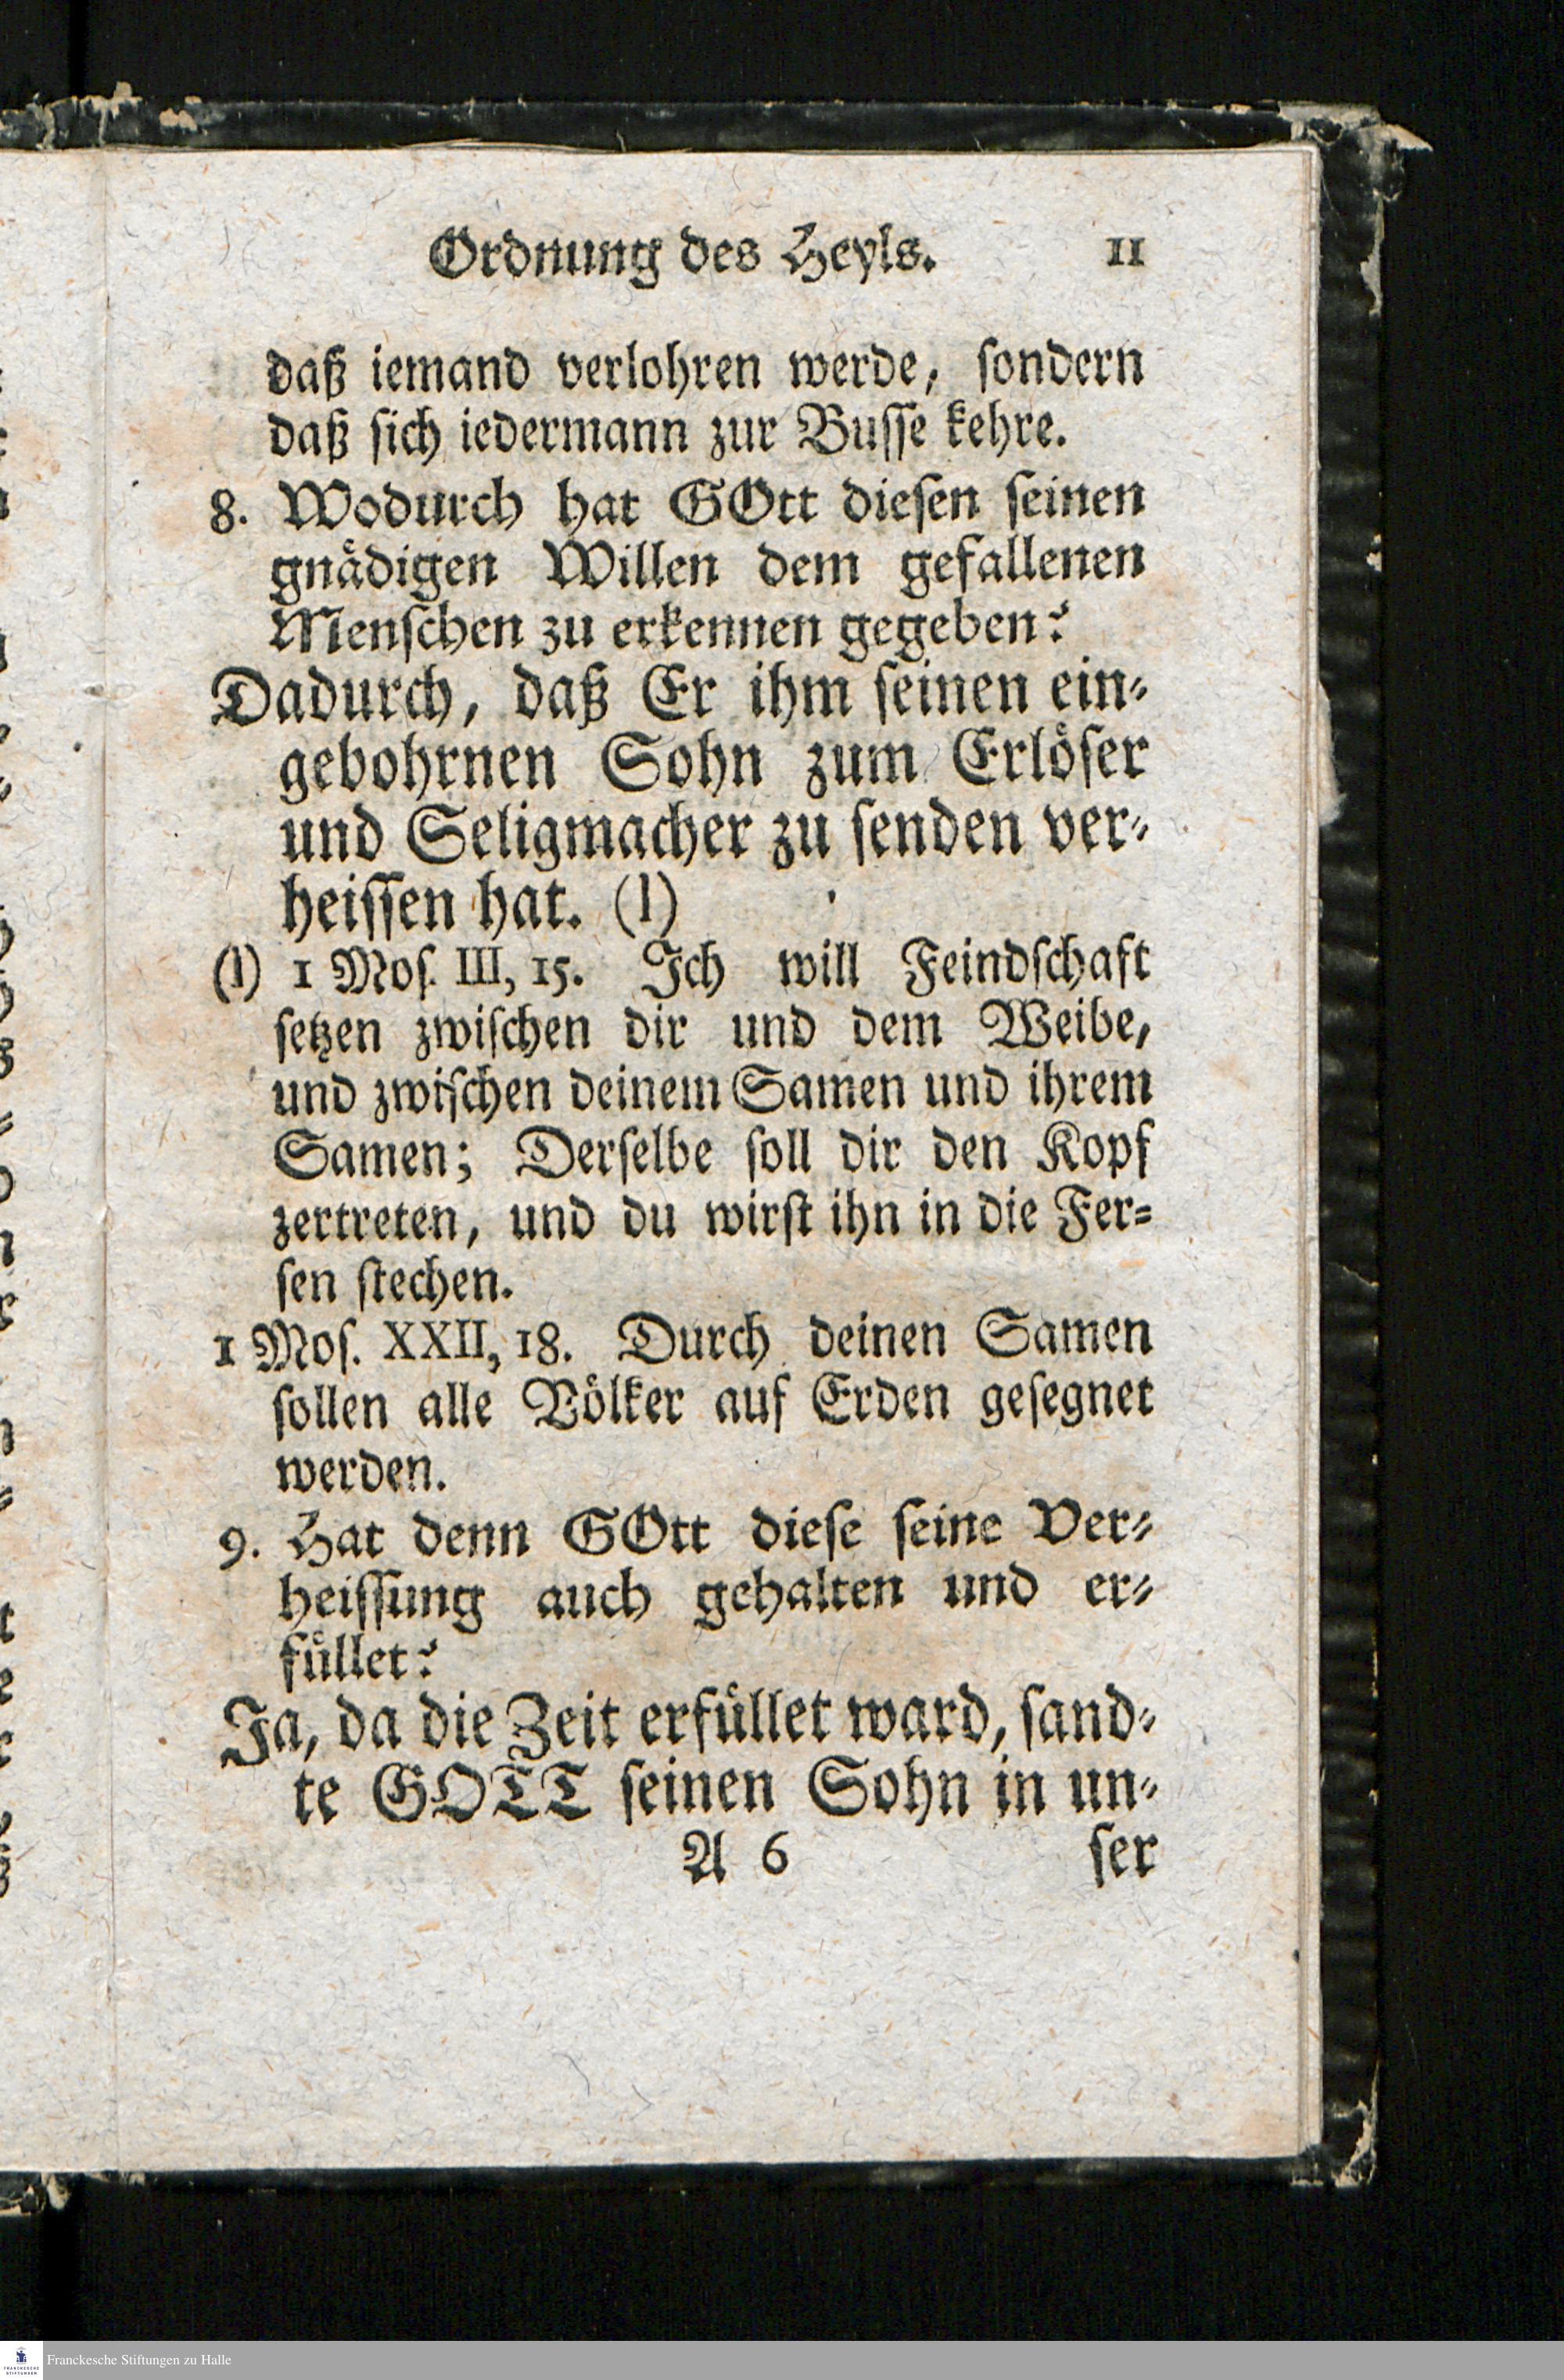 Ordnung des Heyls. 11
daß iemand verlohren werde, ſondern
daß ſich iedermann zur Buſſe kehre.
8. Wodurch hat GOtt dieſen ſeinen
gnädigen Willen dem gefallenen
Menſchen zu erkennen gegeben?
Dadurch, daß Er ihm ſeinen ein⸗
gebohrnen Sohn zum Erlöſer
und Seligmacher zu ſenden ver⸗
heiſſen hat. (l)
(l) 1 Moſ. III, 15. Ich will Feindſchaft
ſetzen zwiſchen dir und dem Weibe,
und zwiſchen deinem Samen und ihrem
Samen; Derſelbe ſoll dir den Kopf
zertreten, und du wirſt ihn in die Fer⸗
ſen ſtechen.
1 Moſ. XXII, 18. Durch deinen Samen
ſollen alle Völker auf Erden geſegnet
werden.
9. Hat denn GOtt dieſe ſeine Ver⸗
heiſſung auch gehalten und er⸗
füllet?
Ja, da die Zeit erfüllet ward, ſand⸗
te GOTT ſeinen Sohn in un⸗
A 6 ſer
FRANCKESCHE
STIFTUNGEN
Franckesche Stiftungen zu Halle